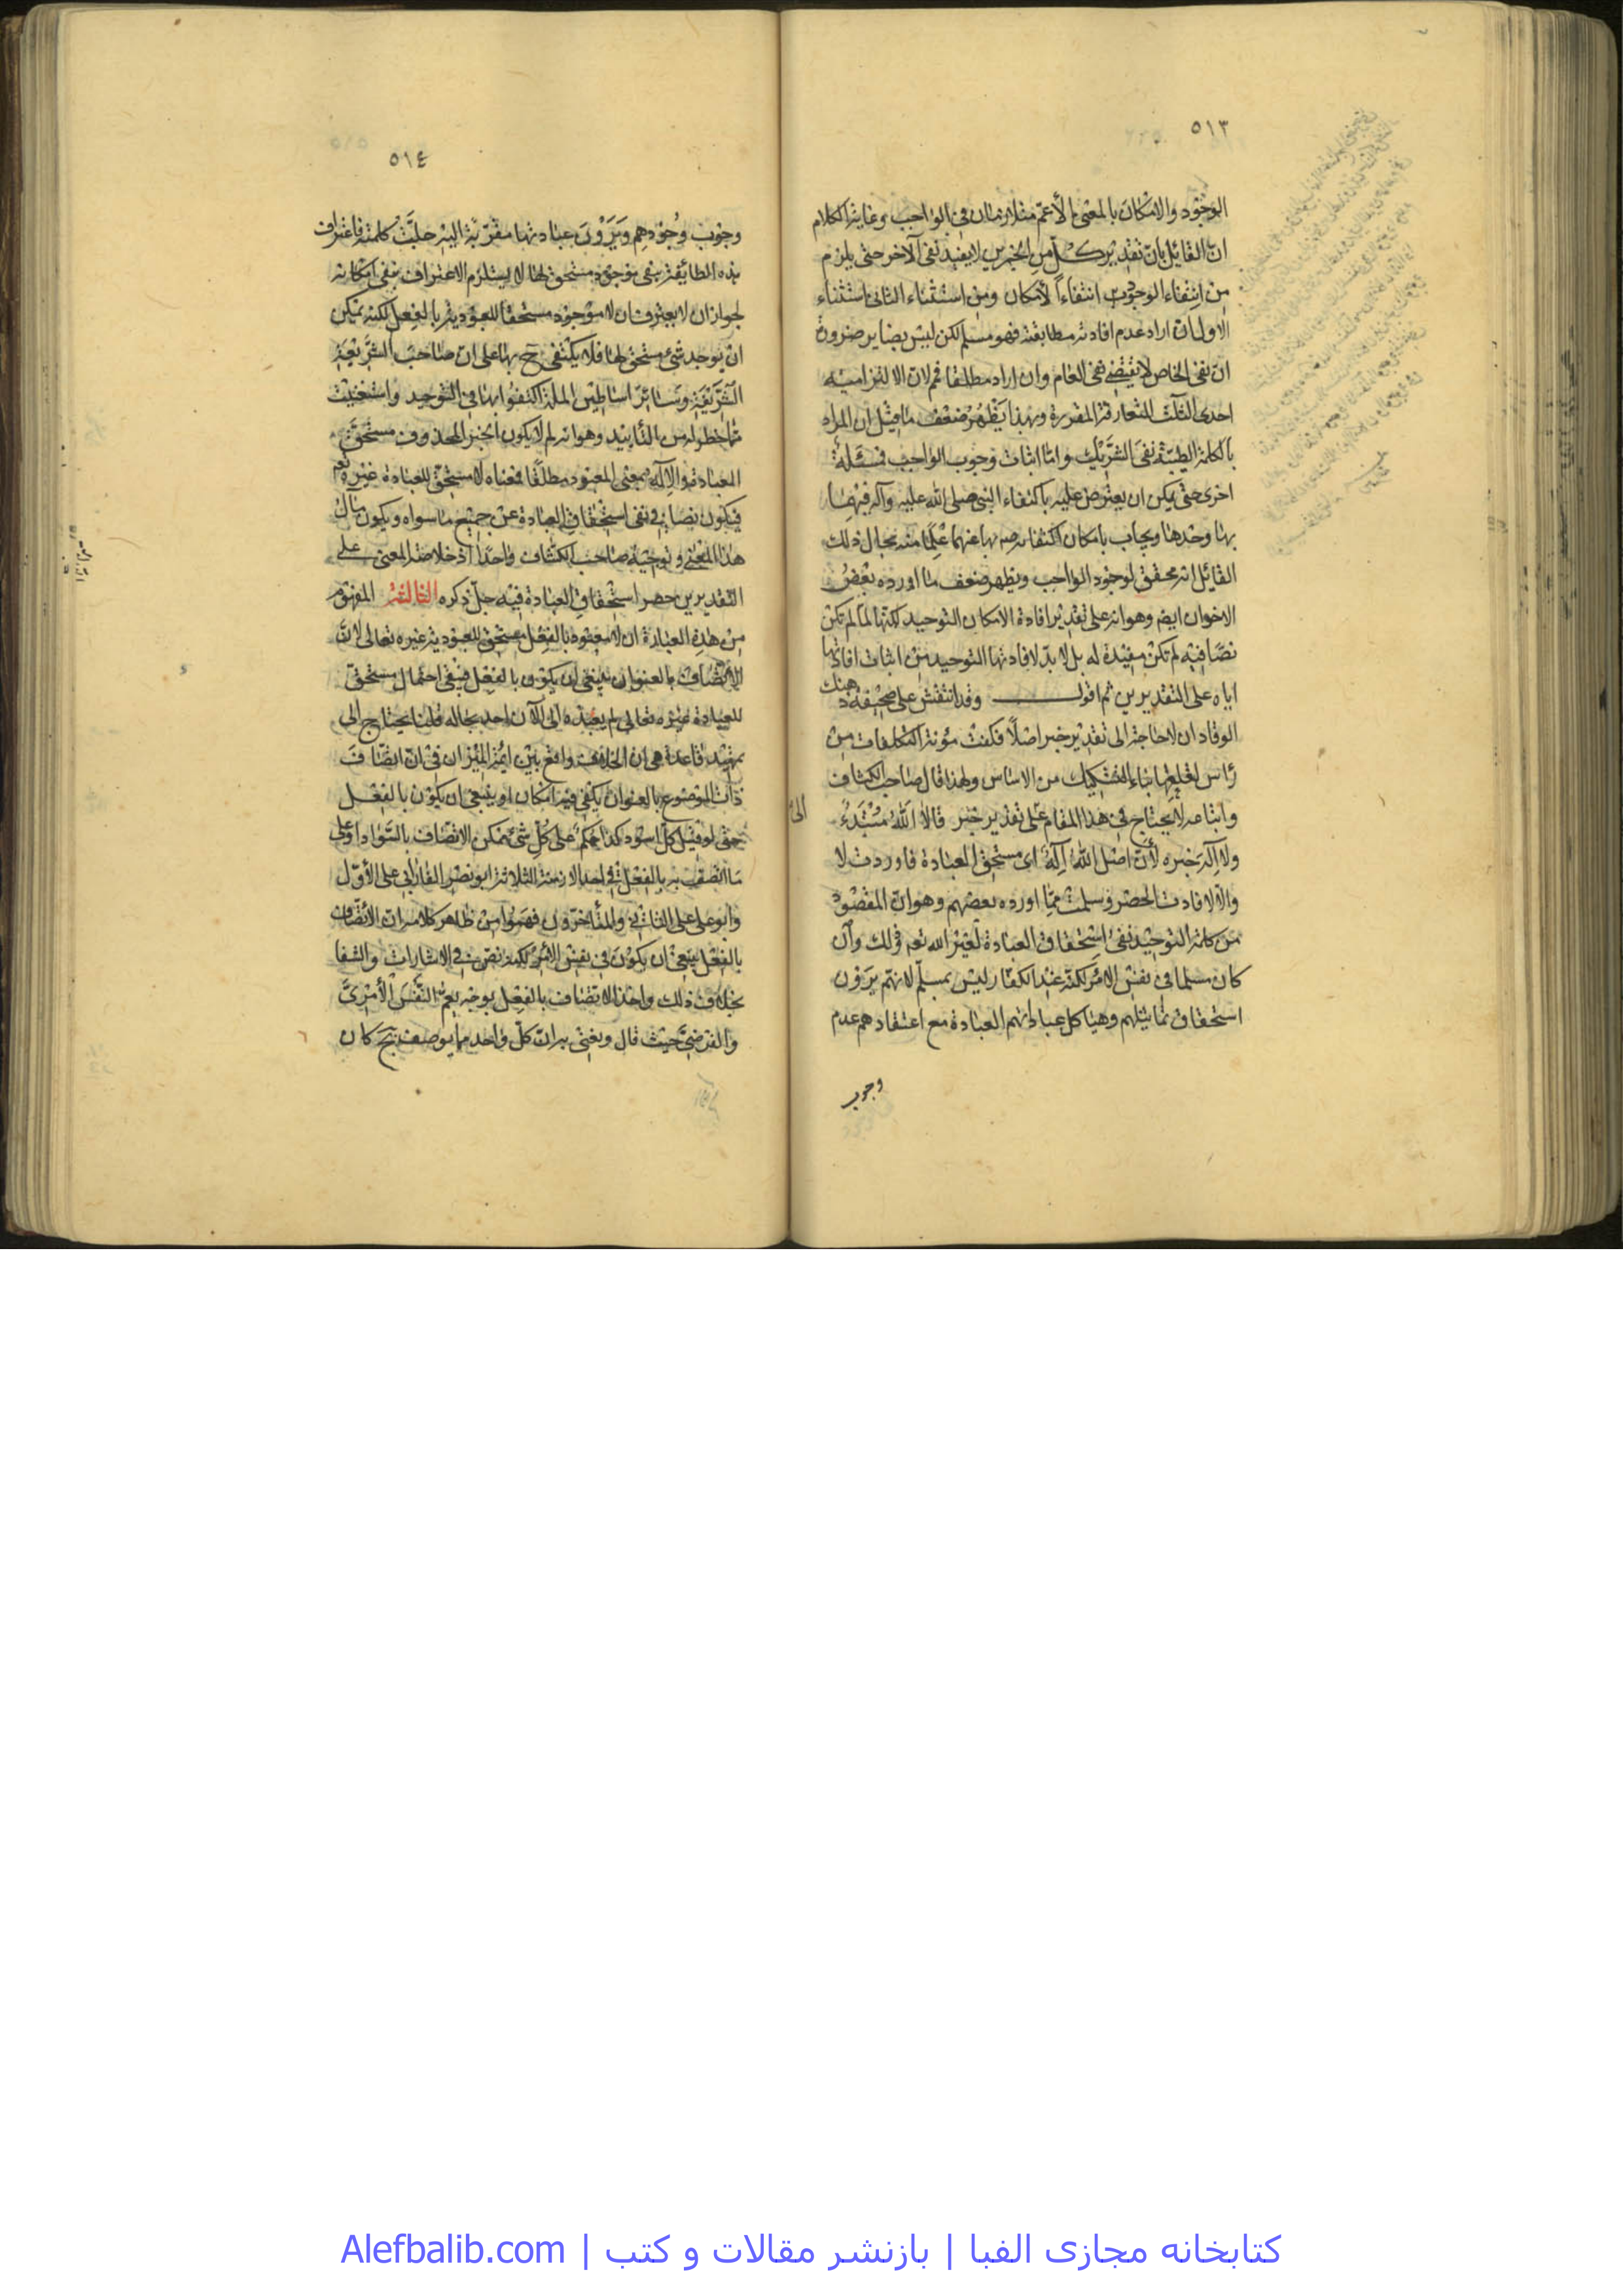 ٥١٣
الوجود والامكان بالمعنى الأعم متلازمان في الواجب وغاية الكلام
ان القائل بان تقدير كل من الخبرين لا يفيد نفى الآخر حتى يلزم
من انتفاء الوجوب انتفاء الامكان ومن استثناء الثانى استثناء
الاول ان اراد عدم افادته مطابقة فهو مسلم لكن ليس بضاير ضرورة
ان نفى الخاص لا يقتضى نفى العام وان اراد مطلقا فم لان الالتزامية
احدى الثلث المتعارفة المقررة وبهذا يظهر ضعف ما قيل ان المراد
بالكلمة الطيبة نفى الشريك واما اثبات وجوب الواجب فمسئلة
اخرى حتى يمكن ان يعترض عليه باكتفاء النبى صلى الله عليه وآله فيهما
بها وحدها ويجاب بامكان اكتفائه صه بها عنهما علما منه بحال ذلك
القائل انه محقق لوجود الواجب ويظهر ضعف ما اورده بعض
الاخوان ايضم وهو انه على تقدير افادة الامكان التوحيد لكنها لما لم تكن
نصا فيه لم تكن مفيدة له بل لا بد لافادتها التوحيد من اثبات افادتها
اياه على التقديرين ثم اقول وقد انتقش على صحيفة ذهنك
الوقاد ان لا حاجة الى تقدير خبر اصلا فكفت مؤنة التكلفات من
رأس لقلعها بناء التشكيك من الاساس ولهذا قال صاحب الكشاف
واتباعه لا يحتاج في هذا المقام على تقدير خبر قالا الله مبتدء
ولا اله خبره لأن اصل الله اله اى مستحق للعبادة فاوردت لا
والا لافادت الحصر وسلمت مما اورده بعضهم وهو ان المقصود
من كلمة التوحيد نفى استحقاق العبادة لغير الله نعم ذلك وان
كان مسلما فى نفس الامر لكنه عند الكفار ليس بمسلم لانهم يرون
استحقاق تماثيلهم وهياكل عباداتهم العبادة مع اعتقادهم عدم
وجوب
٥١٤
وجوب وجودهم ويرون عبادتها مقربة اليه جلت كلمته فاعتراف
هذه الطائفة بنفى موجود مستحق لها لا يستلزم الاعتراف بنفى امكانه
لجواز ان لا يعترف ان لا موجود مستحقا للعبودية بالفعل لكنه يمكن
ان يوجد شئ مستحق لها فلا يكتفى ح بها على ان صاحب الشريعة
الشريفة وسائر اساطين الملة اكتفوا بها فى التوحيد واستغنيت
عما خطر لهم من التأييد وهو انه لم لا يكون الخبر المحذوف مستحق
العبادة والاله بمعنى المعبود مطلقا فمعناه لا مستحق للعبادة غيره نعم
فيكون نصا فى نفى استحقاق العبادة عن جميع ما سواه ويكون مآل
هذا المعنى وتوجيه صاحب الكشاف واحدا اذ خلاصة المعنى على
التقديرين حصر استحقاق العبادة فيه جل ذكره الثالثة المفهوم
من هذه العبارة ان لا معبود بالفعل مستحق للعبودية غيره تعالى لان
الاتصاف بالعنوان ينبغى ان يكون بالفعل فيبقى احتمال مستحق
للعبادة غيره تعالى لم يعبده الى الآن احد بحاله قلنا يحتاج الى
تمهيد قاعدة هى ان الخلاف واقع بين ائمة الميزان فى ان اتصاف
ذات الموضوع بالعنوان يكفى فيه امكان او ينبغى ان يكون بالفعل
حتى لو قيل كل اسود كذا يحكم على كل شئ ممكن الاتصاف بالسواد او على
ما اتصف به بالفعل فى احد الازمنة الثلاثة ابو نصر الفارابى على الأول
وابو على على الثانى والمتأخرون فهموا من ظاهر كلامه ان الاتصاف
بالفعل ينبغى ان يكون فى نفس الامر لكنه نص فى الاشارات والشفا
بخلاف ذلك واخذ الاتصاف بالفعل بوجه يعم النفس الأمرى
والفرضى حيث قال ونعنى به ان كل واحد مما يوصف بج كان
كتابخانه مجازی الفبا | بازنشر مقالات و کتب | Alefbalib.com